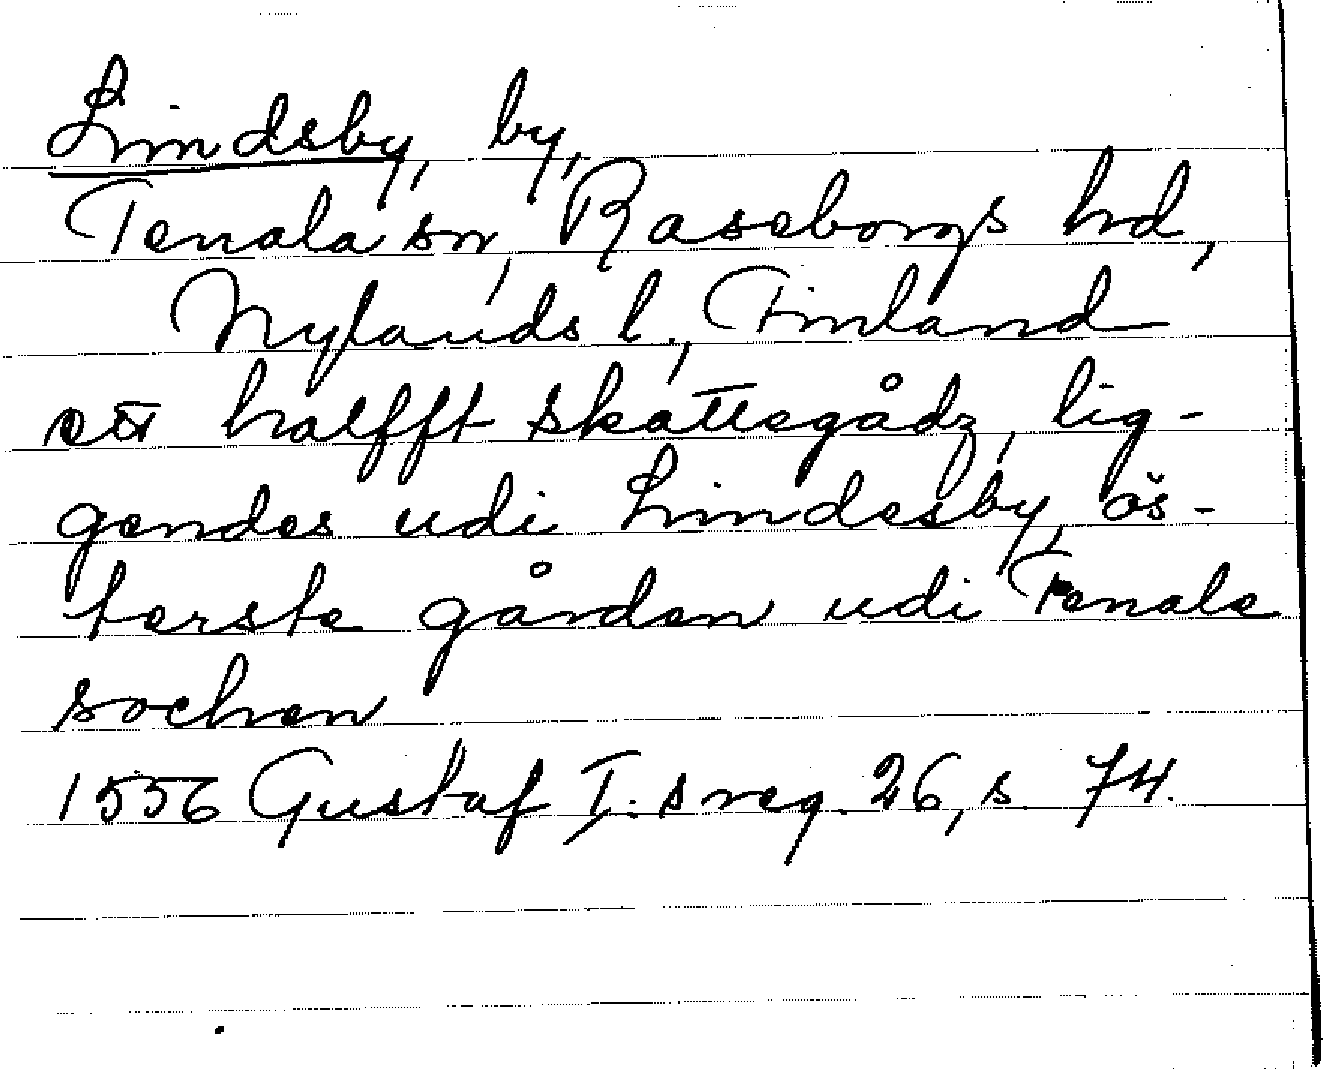 Lindsby, by,
Tenala sn, Raseborgs hd,
Nylands l., Finland
ett halfft skattegådz, lig-
gendes udi Lindesby, ös-
terste gården udi Tenale
sochen
1556 Gustaf I:s reg. 26, s. 74.